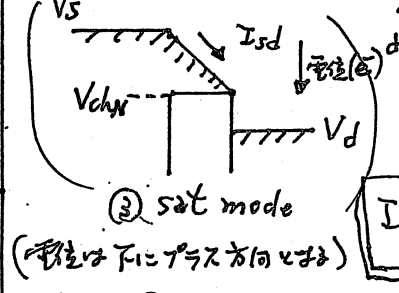 Vs
Isd
電位(e⁻)
VchN
Vd
③ sat mode
(電位は下にプラス方向となる)
I